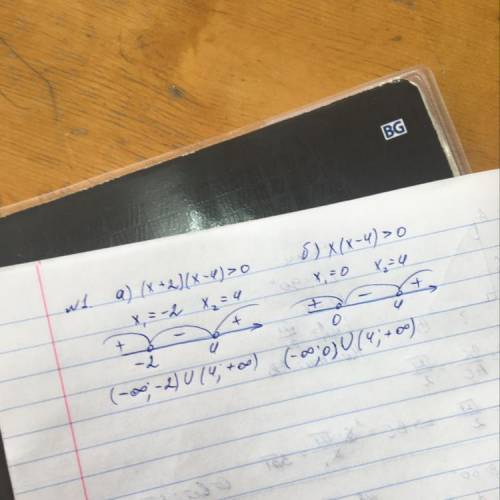 BG
№1. а) (x+2)(x-4)>0
x₁=-2 x₂=4
+ - +
-2 4
(-∞;-2)∪(4;+∞)
б) x(x-4)>0
x₁=0 x₂=4
+ - +
0 4
(-∞;0)∪(4;+∞)